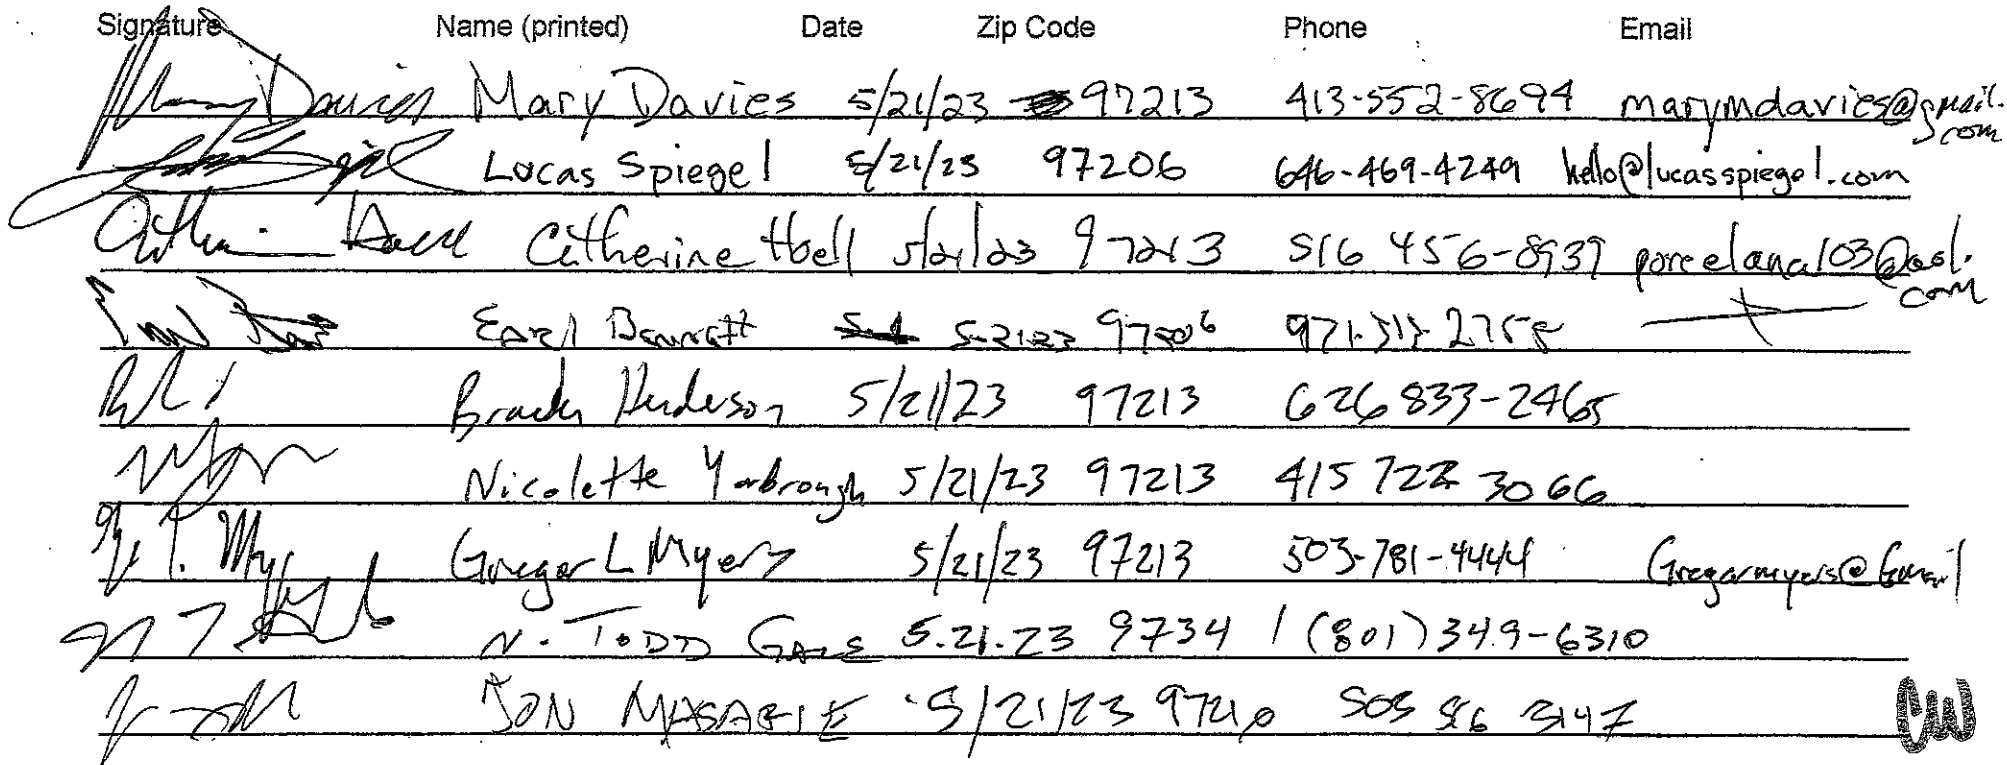 Signature Name (printed) Date Zip Code Phone Email
Mary Davies Mary Davies 5/21/23 97213 413-552-8694 marymdavies@gmail.com
Lucas Spiegel 5/21/23 97206 646-469-4249 hello@lucasspiegel.com
Catherine 5/21/23 97213 516 456-8939 porcelana103@aol.com
Earl Bennett 5-21-23 97206
Henderson 5/21/23 97213 626 833-2465
Nicolette Yarbrough 5/21/23 97213 415 722 3066
Gregor L Myers 5/21/23 97213 503-781-4444 Gregormyers@Gmail
N. TODD 5.21.23 9734 1 (801) 349-6310
JON 5/21/23 503 3147
CW